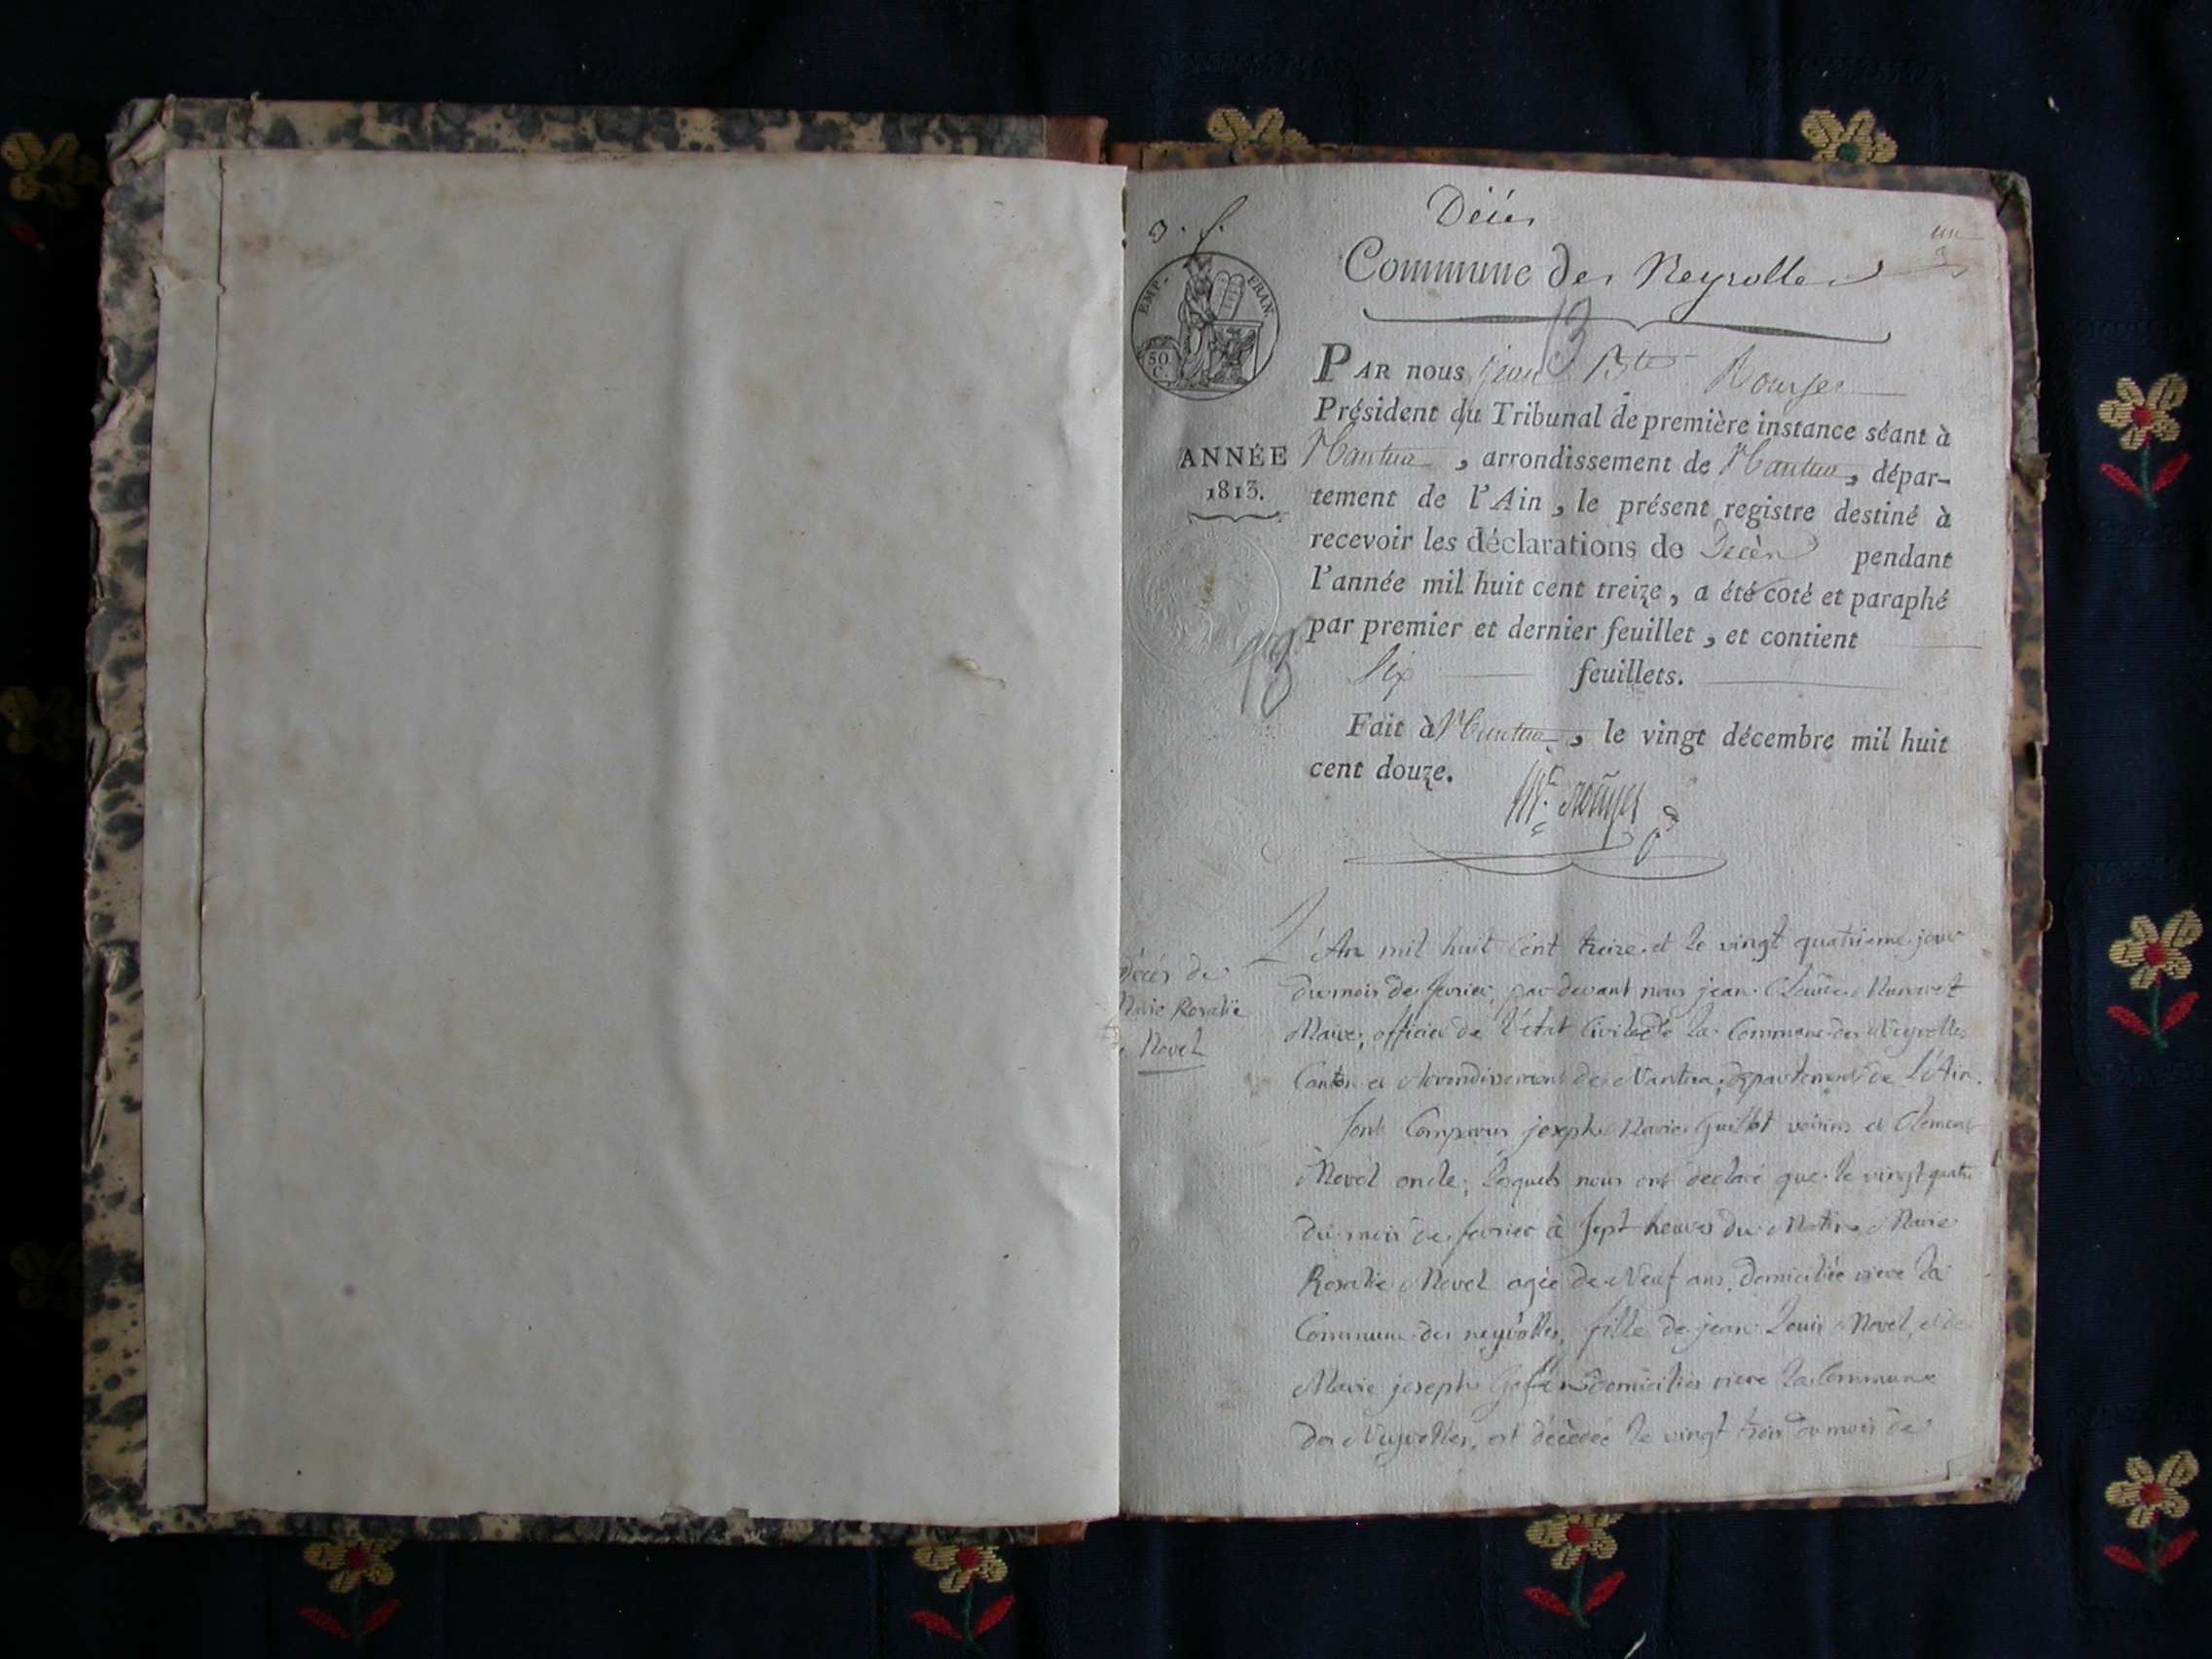 Décès
un
Commune des Neyrolles
EMP. FRAN.
50 C.
13
PAR nous jean Bte Rouyer
Président du Tribunal de première instance séant à
ANNÉE
1813.
Nantua, arrondissement de Nantua, dépar-
tement de l'Ain, le présent registre destiné à
recevoir les déclarations de Décès pendant
l'année mil huit cent treize, a été coté et paraphé
par premier et dernier feuillet, et contient
13
Six feuillets.
Fait à Nantua, le vingt décembre mil huit
cent douze.
Décès de
Marie Rosalie
Novel
L'An mil huit Cent treize et le vingt quatrieme jour
du mois de fevrier, par devant nous jean
Maire, officier de l'état Civile de la Commune des Neyrolles
Canton et Arrondissement de Nantua, département de L'Ain.
Sont Comparus joseph Marie Guillot voisins et Clement
Novel oncle, lesquels nous ont declaré que le vingt quatre
du mois de fevrier à Sept heures du Matin Marie
Rosalie Novel agée de Neuf ans, domiciliée riere la
Commune des neyrolles, fille de jean Louis Novel, et de
Marie joseph domiciliés riere la Commune
des Neyrolles, est décédée le vingt trois du mois de